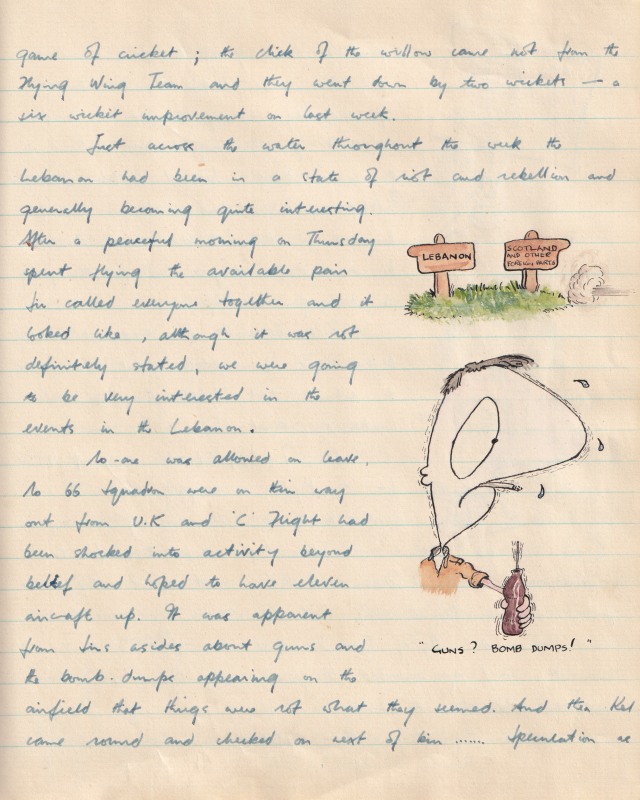 game of cricket ; the click of the willow came not from the
Flying Wing Team and they went down by two wickets — a
six wicket improvement on last week.
Just across the water throughout the week the
Lebanon had been in a state of riot and rebellion and
generally becoming quite interesting.
After a peaceful morning on Thursday
spent flying the available pair
called everyone together and it
looked like, although it was not
definitely stated, we were going
to be very interested in the
events in the Lebanon.
No-one was allowed on leave.
No 66 Squadron were on their way
out from U.K and 'C' Flight had
been shocked into activity beyond
belief and hoped to have eleven
aircraft up. It was apparent
from asides about guns and
the bomb-dumps appearing on the
airfield that things were not what they seemed. And then
came round and checked on next of kin ...... Speculation
LEBANON
SCOTLAND
AND OTHER
FOREIGN PARTS
"GUNS? BOMB DUMPS!"